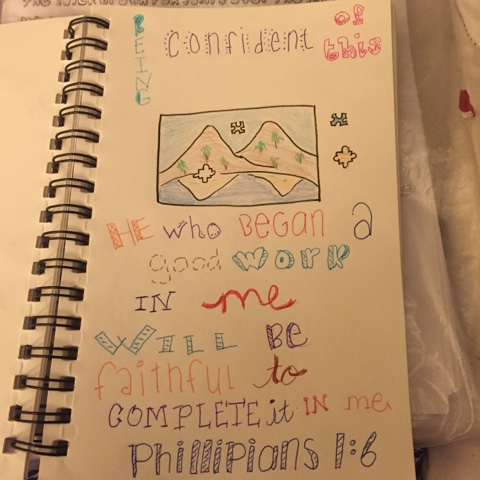 BEING Confident of this
HE who BEGAN a
good WORK
IN me
WILL BE
faithful to
COMPLETE it IN me
Phillipians 1:6